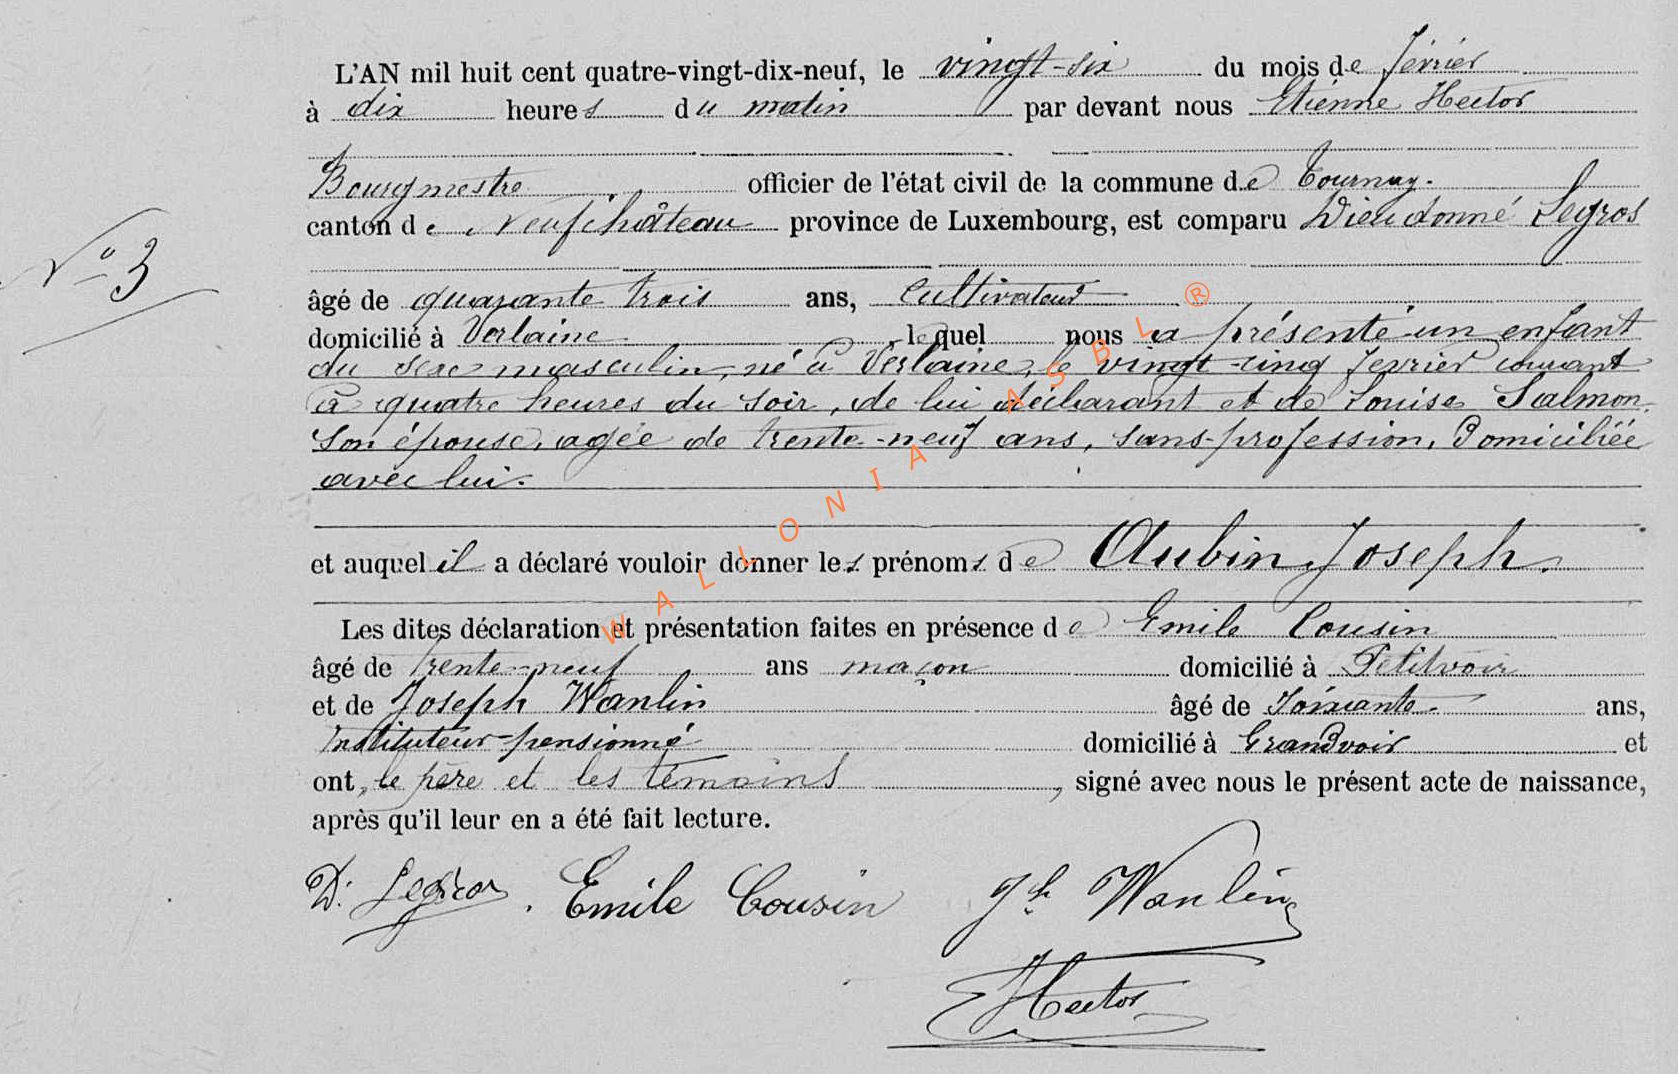 L'AN mil huit cent quatre-vingt-dix-neuf, le vingt-six du mois de février
à dix heures du matin par devant nous Etienne Hector
Bourgmestre officier de l'état civil de la commune de Tournay.
canton de Neufchâteau province de Luxembourg, est comparu Dieudonné Legros
N° 3
âgé de quarante trois ans, cultivateur
domicilié à Verlaine lequel nous a présenté un enfant
du sexe masculin, né à Verlaine, le vingt-cinq fevrier courant
à quatre heures du soir, de lui déclarant et de Louise Salmon,
son épouse, agée de trente-neuf ans, sans profession, domiciliée
avec lui.
et auquel il a déclaré vouloir donner les prénoms de Aubin Joseph.
Les dites déclaration et présentation faites en présence de Emile Cousin
âgé de trente-neuf ans maçon domicilié à Petitvoir
et de Joseph Wanlin âgé de soixante ans,
Instituteur pensionné domicilié à Grandvoir et
ont, le père et les témoins, signé avec nous le présent acte de naissance,
après qu'il leur en a été fait lecture.
D. Legros. Emile Cousin Jh Wanlin
E Hector
WALLONIA ASBL ®